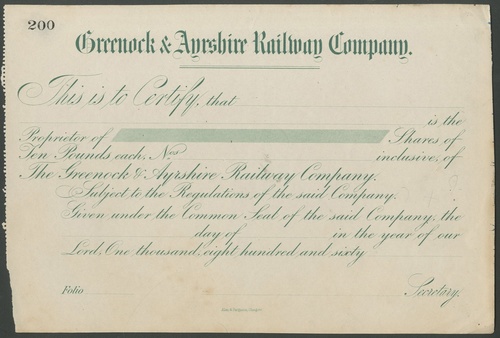 200
Greenock & Ayrshire Railway Company.
This is to Certify, that
is the
Proprietor of Shares of
Ten Pounds each, Nos inclusive, of
The Greenock & Ayrshire Railway Company.
Subject to the Regulations of the said Company.
Given under the Common Seal of the said Company, the
day of in the year of our
Lord, One thousand, eight hundred and sixty
Folio Secretary.